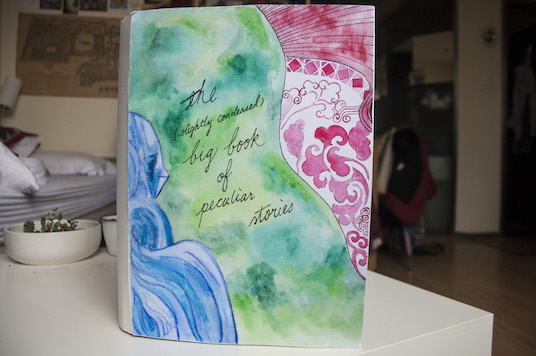 the
(slightly condensed)
big book
of
peculiar
stories